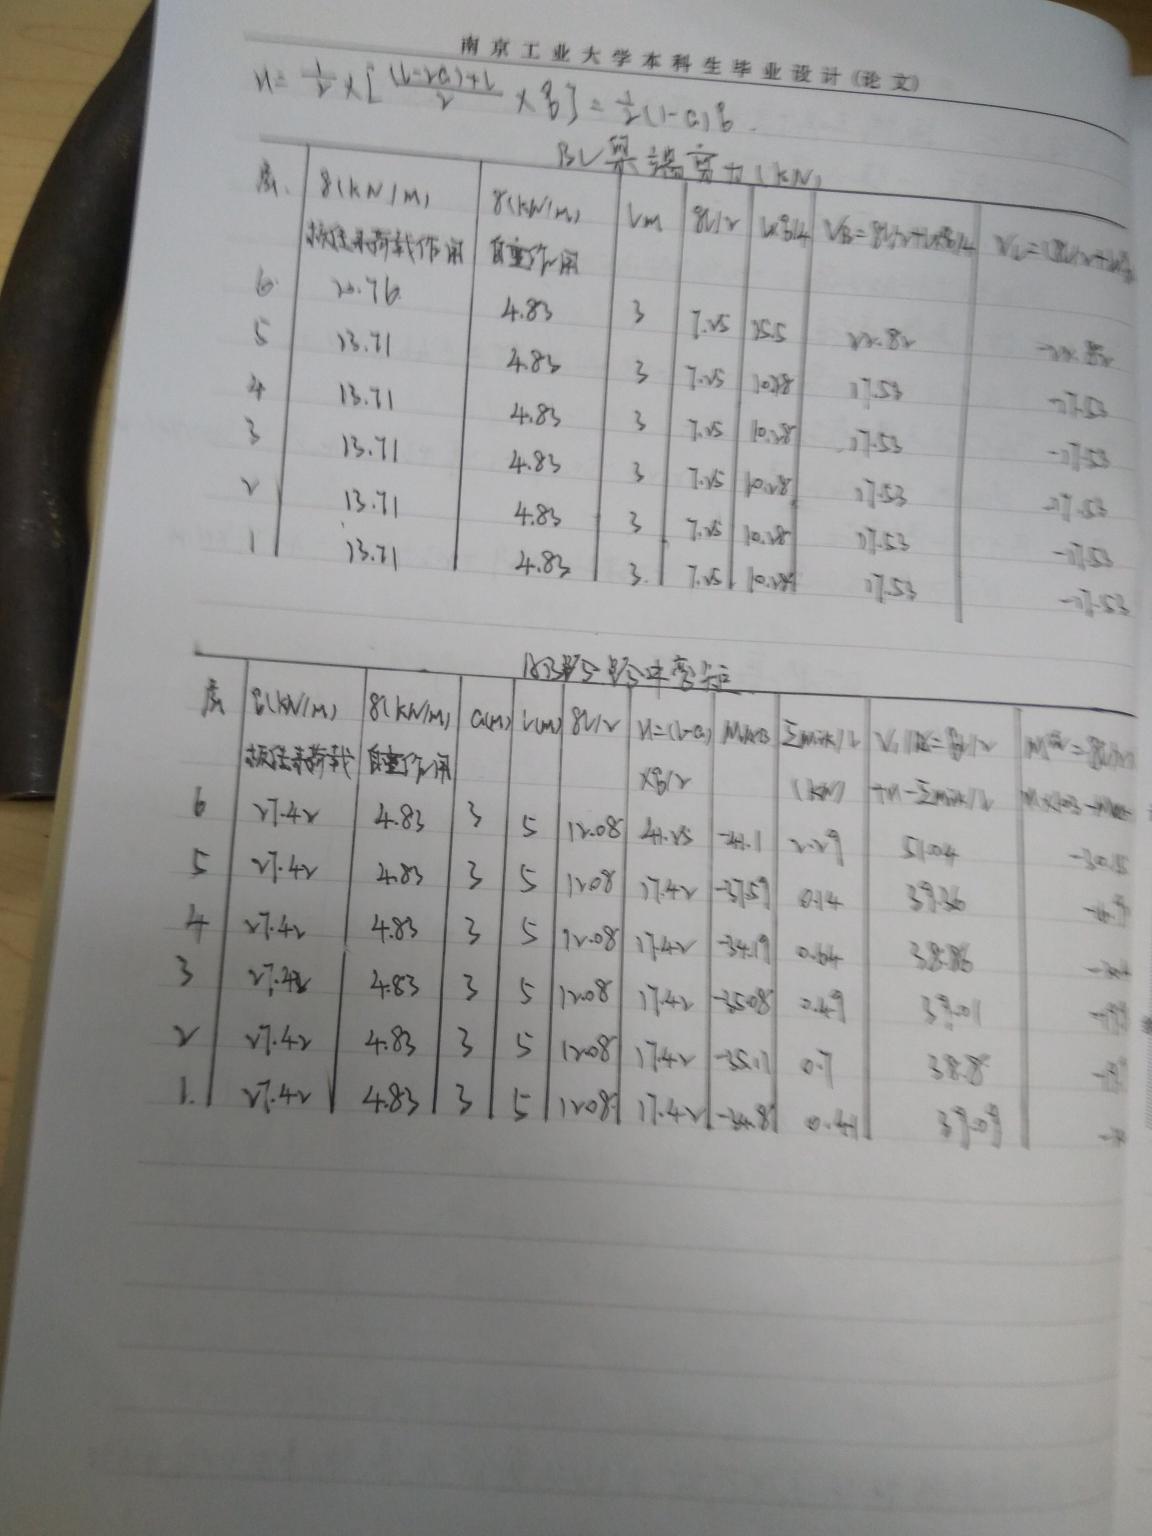 南京工业大学本科生毕业设计(论文)
u= 1/2 ×[ (l-2a)+l / 2 ×q] = 1/2 (l-a)q
梁端剪力(kN)
层 q(kN/m) g(kN/m) lm gl/2 lxq/4
板传来荷载作用 自重作用
6 20.76 4.83 3 7.25 15.5 22.82
5 13.71 4.83 3 7.25 10.28 17.53 -17.53
4 13.71 4.83 3 7.25 10.28 17.53 -17.53
3 13.71 4.83 3 7.25 10.28 17.53 -17.53
2 13.71 4.83 3 7.25 10.28 17.53 -17.53
1 13.71 4.83 3 7.25 10.28 17.53 -17.53
AB跨跨中弯矩
层 q(kN/m) g(kN/m) a(m) l(m) gl/2 u=(l-a) MAB ΣMik/l
板传来荷载 自重作用 ×q/2 (kN) +u-ΣMik/l
6 27.42 4.83 3 5 12.08 41.25 2.29 51.04
5 27.42 4.83 3 5 12.08 17.42 -37.59 0.14 39.36
4 27.42 4.83 3 5 12.08 17.42 -34.19 0.64 38.86
3 27.42 4.83 3 5 12.08 17.42 -35.08 0.49 39.01
2 27.42 4.83 3 5 12.08 17.42 -35.11 0.7 38.8
1. 27.42 4.83 3 5 12.08 17.42 -34.8 0.41 39.09